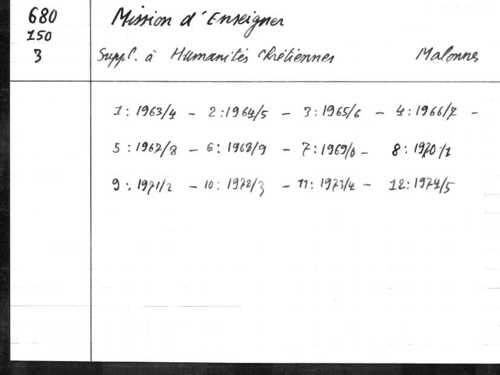 680 Mission d'Enseigner
150
3 Suppl. à Humanités Chrétiennes Malonnes
1 : 1963/4 - 2 : 1964/5 - 3 : 1965/6 - 4 : 1966/7 -
5 : 1967/8 - 6 : 1968/9 - 7 : 1969/0 - 8 : 1970/1
9 : 1971/2 - 10 : 1972/3 - 11 : 1973/4 - 12 : 1974/5